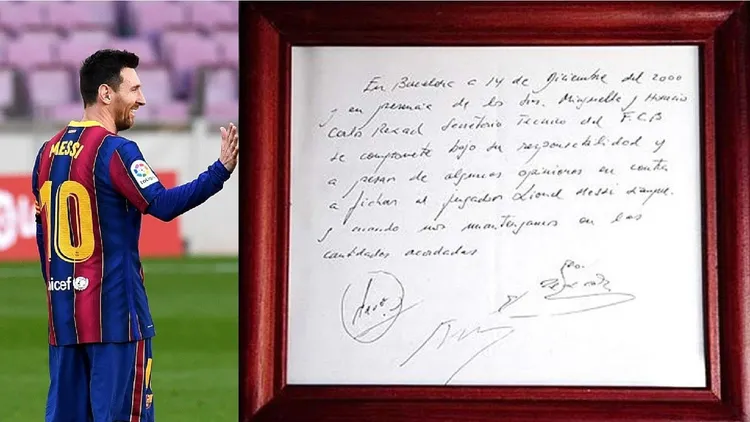 MESSI
10
unicef
En Barcelona a 14 de Diciembre del 2000
y en presencia de los Sres. Minguella y Horacio
Carlo Rexach Secretario Técnico del F.C.B
se compromete bajo su responsabilidad y
a pesar de algunas opiniones en contra
a fichar al jugador Lionel Messi siempre
y cuando nos mantengamos en las
cantidades acordadas